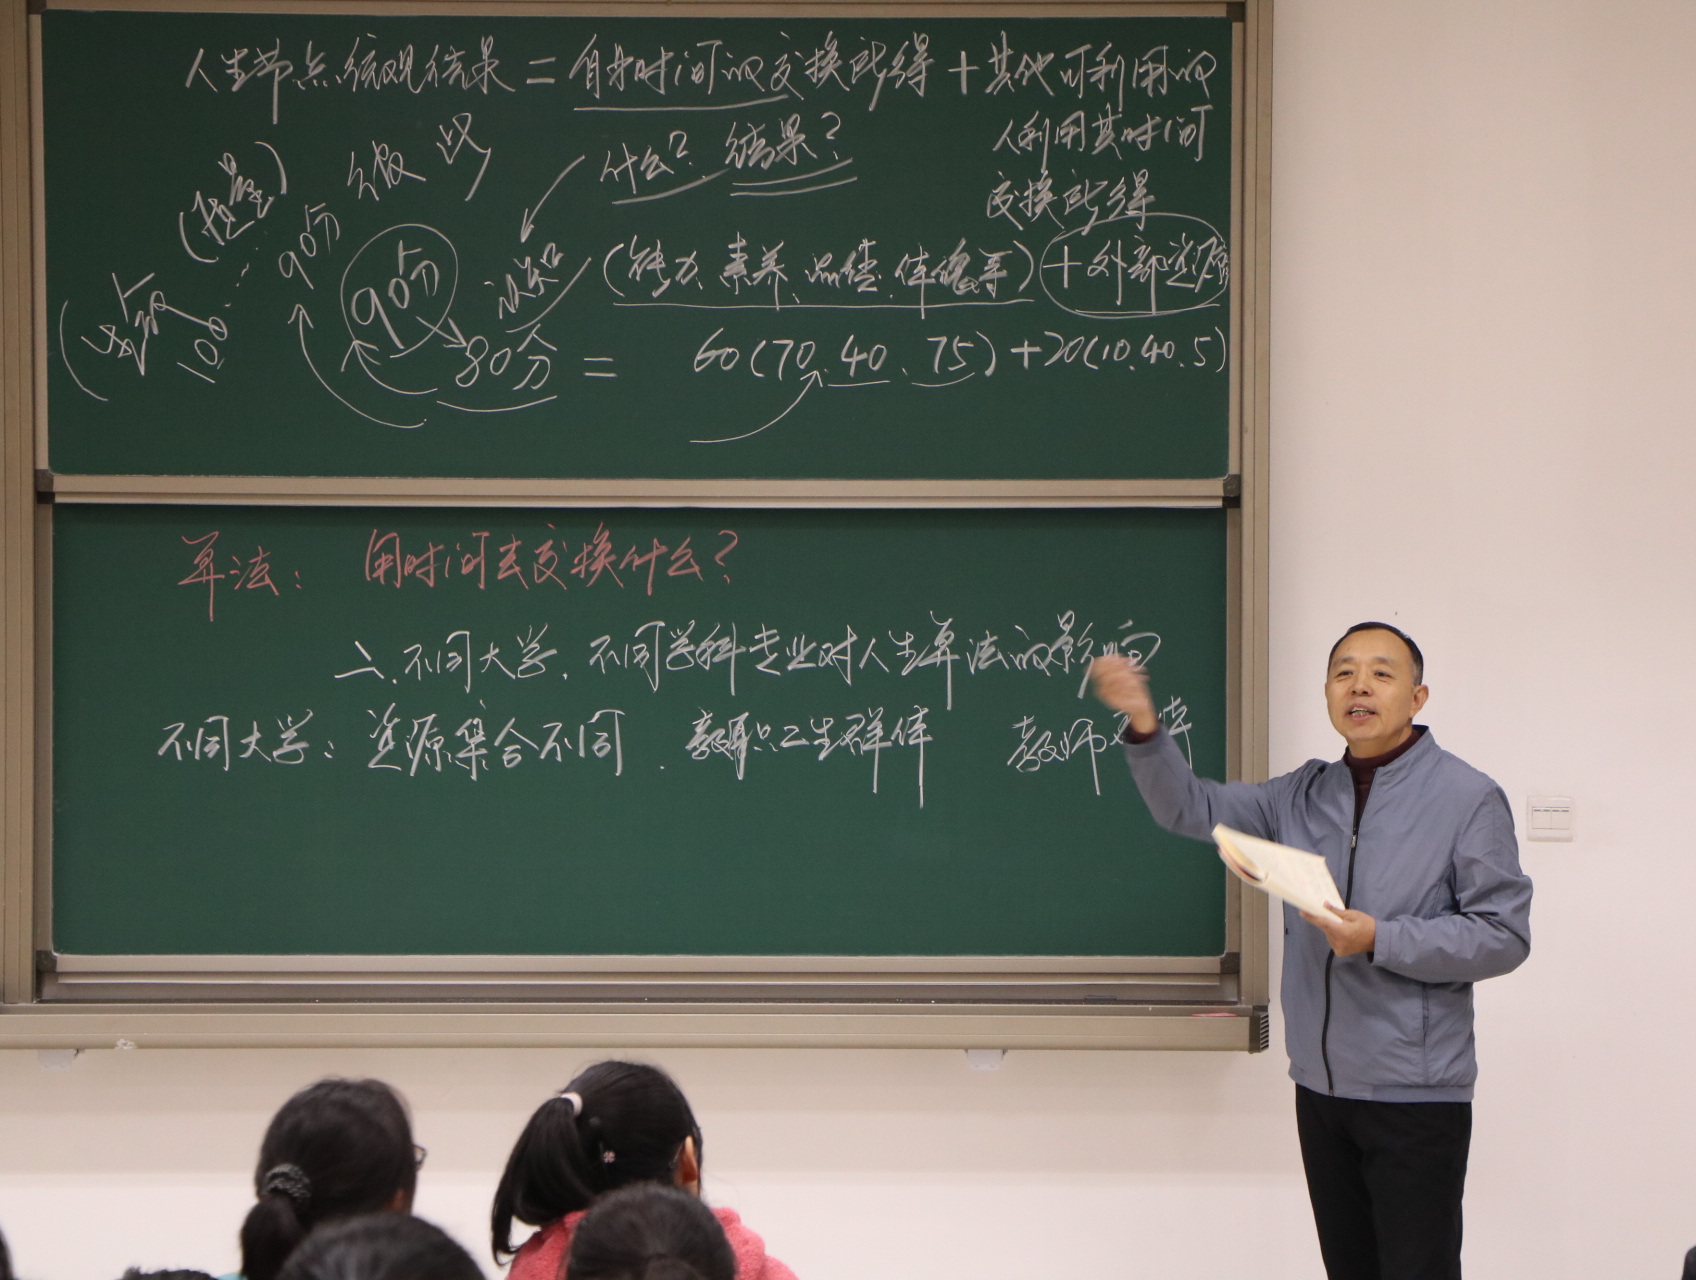 人生节点终观结果=自身时间的交换所得+其他可利用的
人利用其时间
交换所得
什么? 结果?
90分
90分
认知
(能力、素养、品性、体魄等)+外部资源
100
80分 = 60(70、40、75)+20(10、40、5)
算法: 用时间去交换什么?
二、不同大学、不同学科专业对人生算法的影响
不同大学: 资源集合不同、教职工生群体 教师